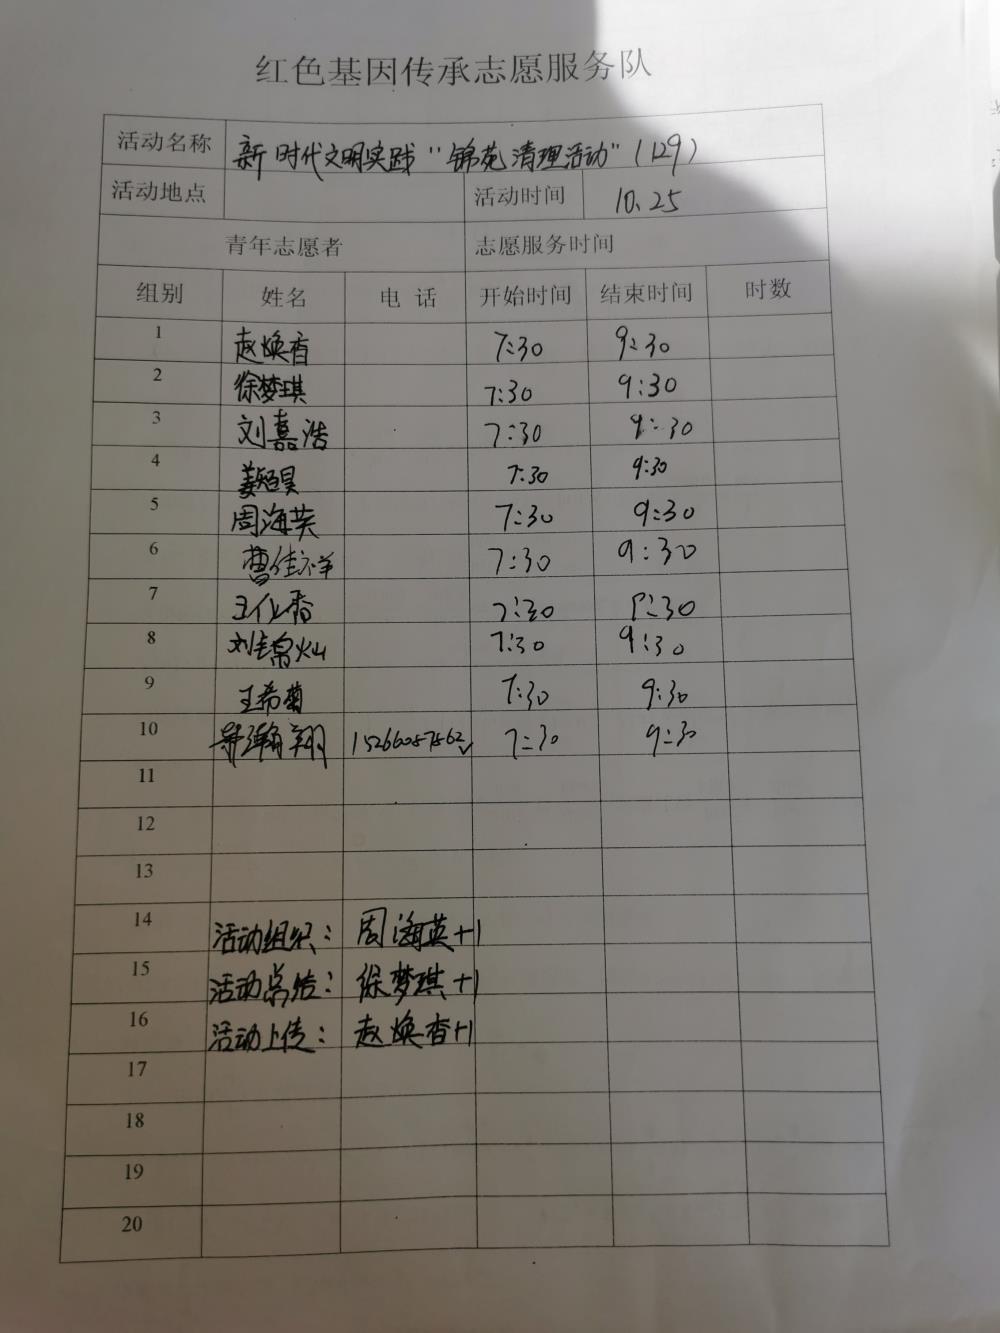 红色基因传承志愿服务队
活动名称 新时代文明实践“锦苑清理活动”(129)
活动地点 活动时间 10.25
青年志愿者 志愿服务时间
组别 姓名 电话 开始时间 结束时间 时数
1 赵焕香 7:30 9:30
2 徐梦琪 7:30 9:30
3 刘嘉浩 7:30 9:30
4 姜昊 7:30 9:30
5 周海英 7:30 9:30
6 曹佳祥 7:30 9:30
7 王化香 7:30 9:30
8 刘锦灿 7:30 9:30
9 王希菊 7:30 9:30
10 瀚翔 7:30 9:30
11
12
13
14 活动组织: 周海英+1
15 活动总结: 徐梦琪+1
16 活动上传: 赵焕香+1
17
18
19
20